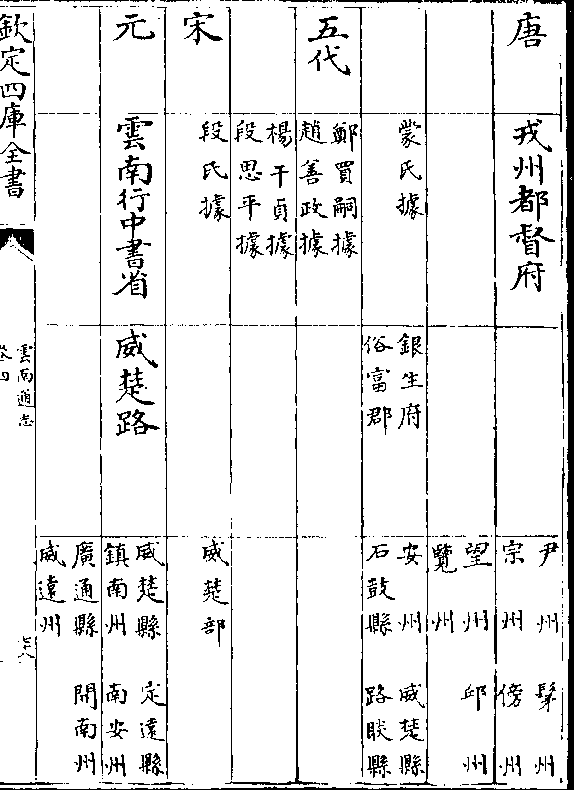 唐
戎州都督府
尹州 髳州
宗州 傍州
望州 邱州
覽州
蒙氏據
銀生府
俗富郡
安州 威楚縣
石鼓縣 路賧縣
五代
鄭買嗣據
趙善政據
楊干貞據
段思平據
宋
段氏據
威楚部
元
雲南行中書省
威楚路
威楚縣 定遠縣
鎮南州 南安州
廣通縣 開南州
威遠州
欽定四庫全書
雲南通志
卷四